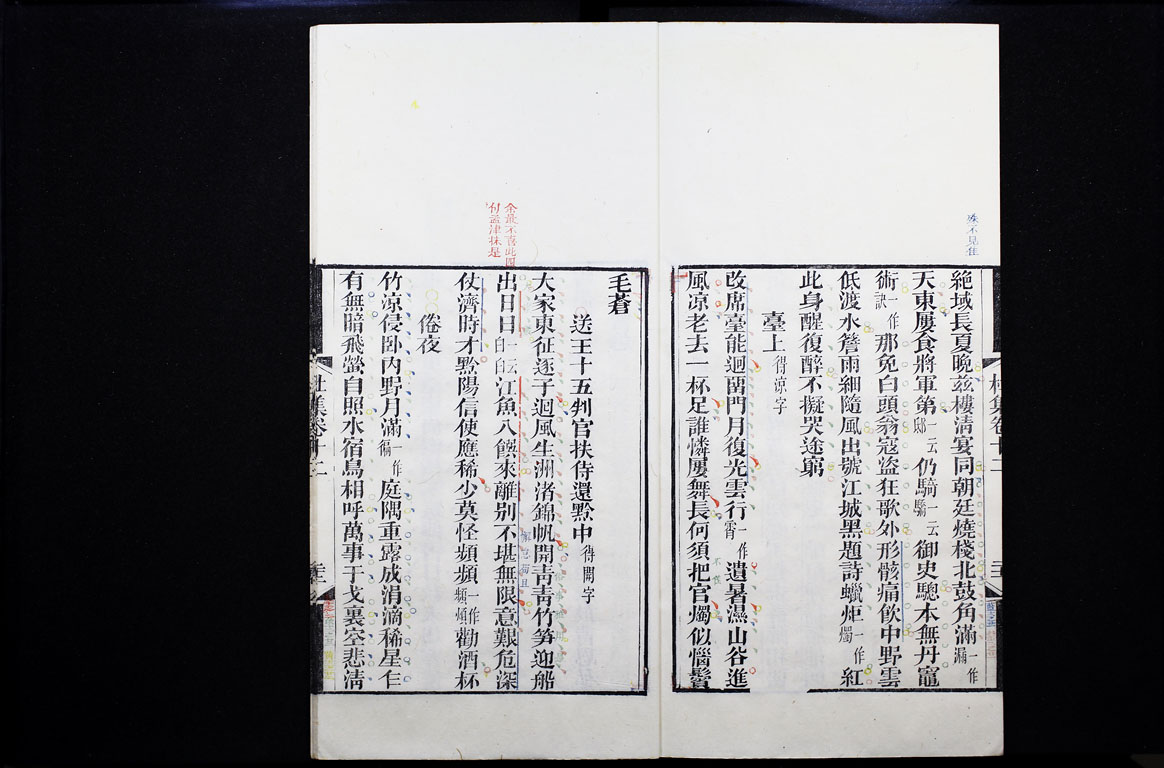 殊不見佳
絕域長夏晚茲樓清宴同朝廷燒棧北鼓角滿一作漏
天東屢食將軍第一云邸仍騎一云驕御史驄本無丹竈
術一作訣那免白頭翁寇盜狂歌外形骸痛飲中野雲
低渡水簷雨細隨風出號江城黑題詩蠟炬一作燭紅
此身醒復醉不擬哭途窮
臺上得涼字
改席臺能迥留門月復光雲行一作霄遺暑濕山谷進
風涼老去一杯足誰憐屢舞長何須把官燭似惱鬢
毛蒼
送王十五判官扶侍還黔中得開字
大家東征逐子迴風生洲渚錦帆開青青竹笋迎船
出日日一云白白江魚入饌來離別不堪無限意艱危深
仗濟時才黔陽信使應稀少莫怪頻頻一作頻煩勸酒杯
倦夜
竹涼侵臥內野月滿一作徧庭隅重露成涓滴稀星乍
有無暗飛螢自照水宿鳥相呼萬事干戈裏空悲清
余最不喜此四
付孟津抹是
杜集卷十二